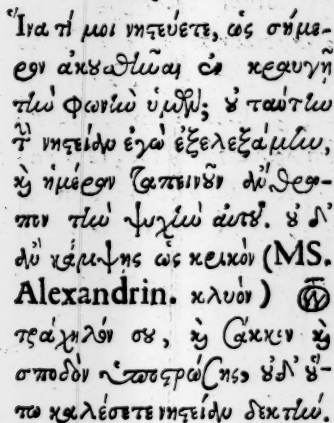 Ἵνα τί μοι νηϛεύετε, ὡς σήμε-
ρον ἀκουσθῆναι ἐν κραυγῇ
τὴν φωνὴν ὑμῶν; οὐ ταύτην
τὴν νηϛείαν ἐγὼ ἐξελεξάμην,
καὶ ἡμέραν ταπεινοῦν ἄνθρω-
πον τὴν ψυχὴν αὐτοῦ. οὐ δ'
ἂν κάμψῃς ὡς κρικὸν (MS.
Alexandrin. κλυὸν) τὸν
τράχηλόν σου, καὶ σάκκον καὶ
σποδὸν ὑποϛρώσῃς, οὐδ' οὕ-
τω καλέσετε νηϛείαν δεκτήν.